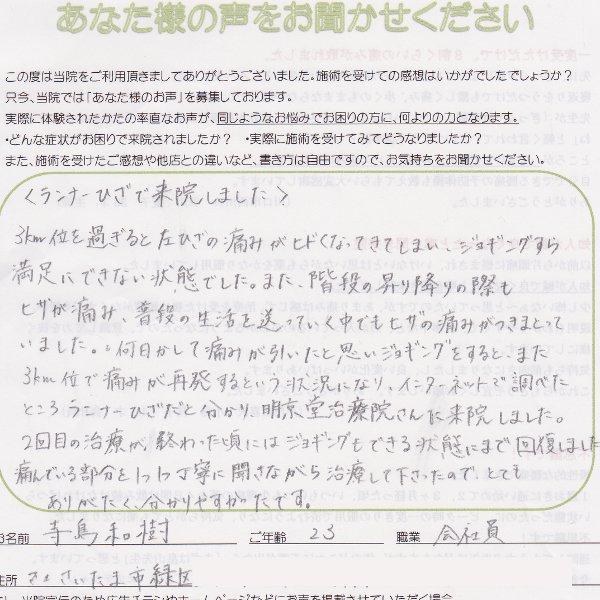 あなた様の声をお聞かせください
この度は当院をご利用頂きましてありがとうございました。施術を受けての感想はいかがでしたでしょうか?
只今、当院では「あなた様のお声」を募集しております。
実際に体験されたかたの率直なお声が、同じようなお悩みでお困りの方に、何よりの力となります。
・どんな症状がお困りで来院されましたか? ・実際に施術を受けてみてどうなりましたか?
また、施術を受けたご感想や他店との違いなど、書き方は自由ですので、お気持ちをお聞かせください。
<ランナーひざで来院しました>
3km位を過ぎると左ひざの痛みがヒドくなってきてしまい ジョギングすら
満足にできない状態でした。また、階段の昇り降りの際も
ヒザが痛み、普段の生活を送っていく中でもヒザの痛みがつきまとって
いました。何日かして痛みが引いたと思いジョギングをすると、また
3km位で痛みが再発するという状況になり、インターネットで調べた
ところランナーひざだと分かり、明京堂治療院さんに来院しました。
2回目の治療が終わった頃にはジョギングもできる状態にまで回復しました
痛んでいる部分を1つ1つ丁寧に聞きながら治療して下さったので とても
ありがたく、分かりやすかったです。
お名前 寺島和樹 ご年齢 23 職業 会社員
住所 さいたま市緑区